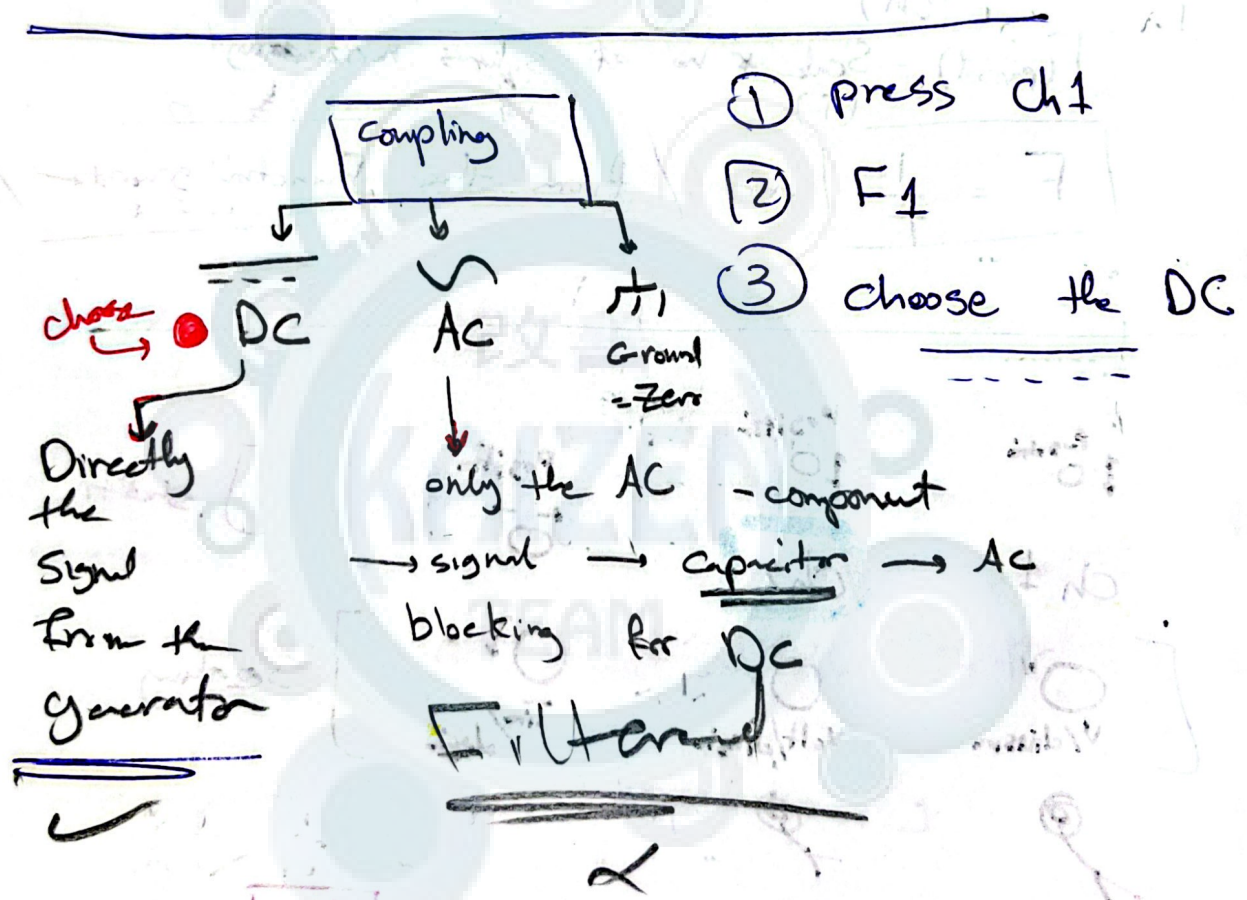 coupling
① press Ch1
② F1
③ choose the DC
choose → DC
AC
Ground
= Zero
Directly
the
Signal
from the
generator
only the AC - component
→ signal → capacitor → AC
blocking for DC
Filtered
改善
KAIZEN
TEAM